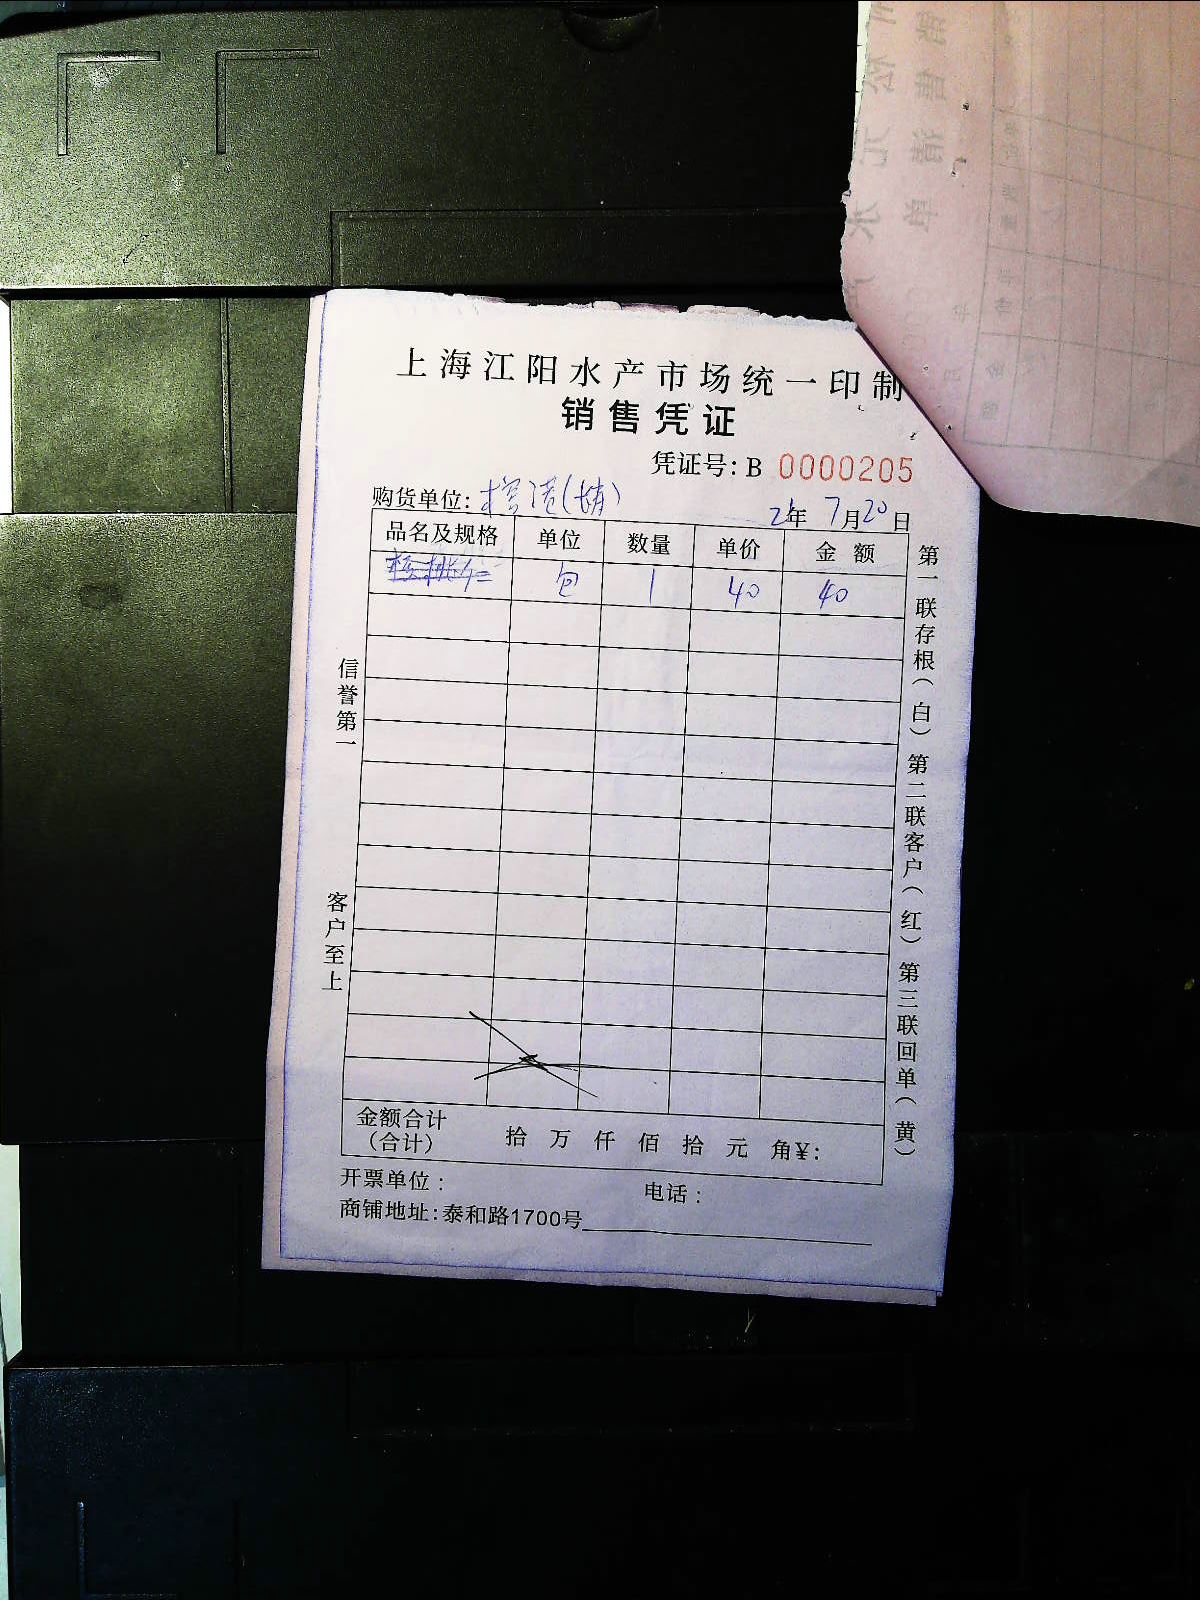 上海江阳水产市场统一印制
销售凭证
凭证号: B 0000205
购货单位: 年 7月20日
品名及规格 单位 数量 单价 金额
核桃仁 包 1 40 40
信誉第一
客户至上
第一联存根(白) 第二联客户(红) 第三联回单(黄)
金额合计
(合计) 拾 万 仟 佰 拾 元 角¥:
开票单位: 电话:
商铺地址:泰和路1700号